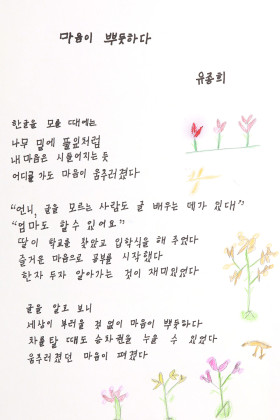 마음이 뿌듯하다
유종희
한글을 모를 때에는
나무 밑에 풀잎처럼
내 마음은 시들어지는 듯
어디를 가도 마음이 움추러졌다
"언니, 글을 모르는 사람도 글 배우는 데가 있대"
"엄마도 할 수 있어요"
딸이 학교를 찾았고 입학식을 해 주었다
즐거운 마음으로 공부를 시작했다
한자 두자 알아가는 것이 재미있었다
글을 알고 보니
세상이 부러울 것 없이 마음이 뿌듯하다
차를 탈 때도 승차권을 누를 수 있었다
움추러졌던 마음이 펴졌다